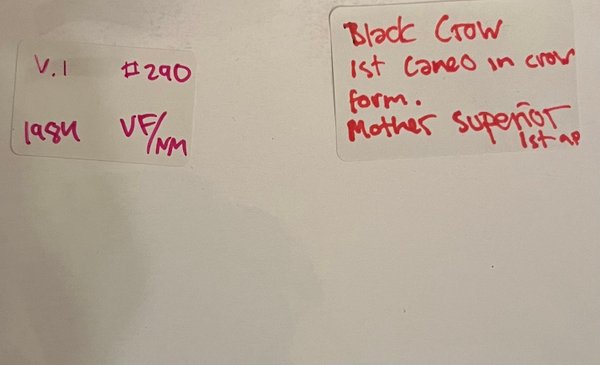 V.1 #290
1984 VF/NM
Black Crow
1st Cameo in crow
form.
Mother superior
1st ap